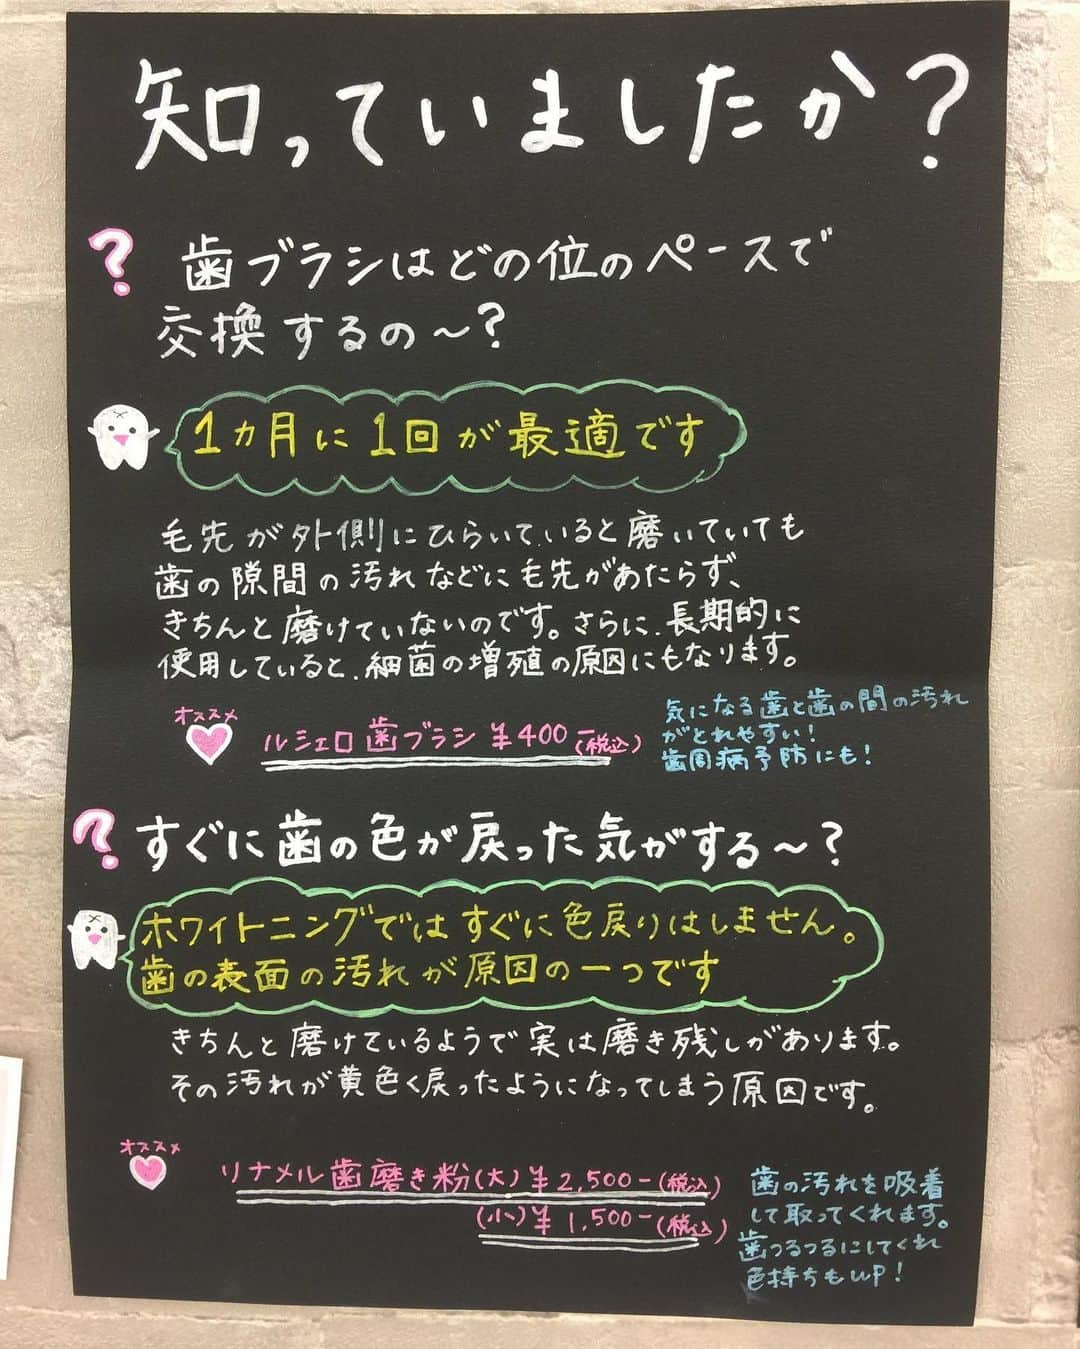 知っていましたか?
? 歯ブラシはどの位のペースで
交換するの～?
1ヵ月に1回が最適です
毛先が外側にひらいていると磨いていても
歯の隙間の汚れなどに毛先があたらず、
きちんと磨けていないのです。さらに、長期的に
使用していると、細菌の増殖の原因にもなります。
オススメ
ルシェロ歯ブラシ ¥400-(税込)
気になる歯と歯の間の汚れ
がとれやすい!
歯周病予防にも!
? すぐに歯の色が戻った気がする～?
ホワイトニングではすぐに色戻りはしません。
歯の表面の汚れが原因の一つです
きちんと磨けているようで実は磨き残しがあります。
その汚れが黄色く戻ったようになってしまう原因です。
オススメ
リナメル歯磨き粉(大)¥2,500-(税込)
(小)¥1,500-(税込)
歯の汚れを吸着
して取ってくれます。
歯つるつるにしてくれ
色持ちもup!